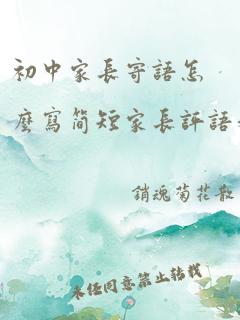 初中家长寄語怎
麼寫简短家长評語
銷魂菊花散
未經同意禁止转载